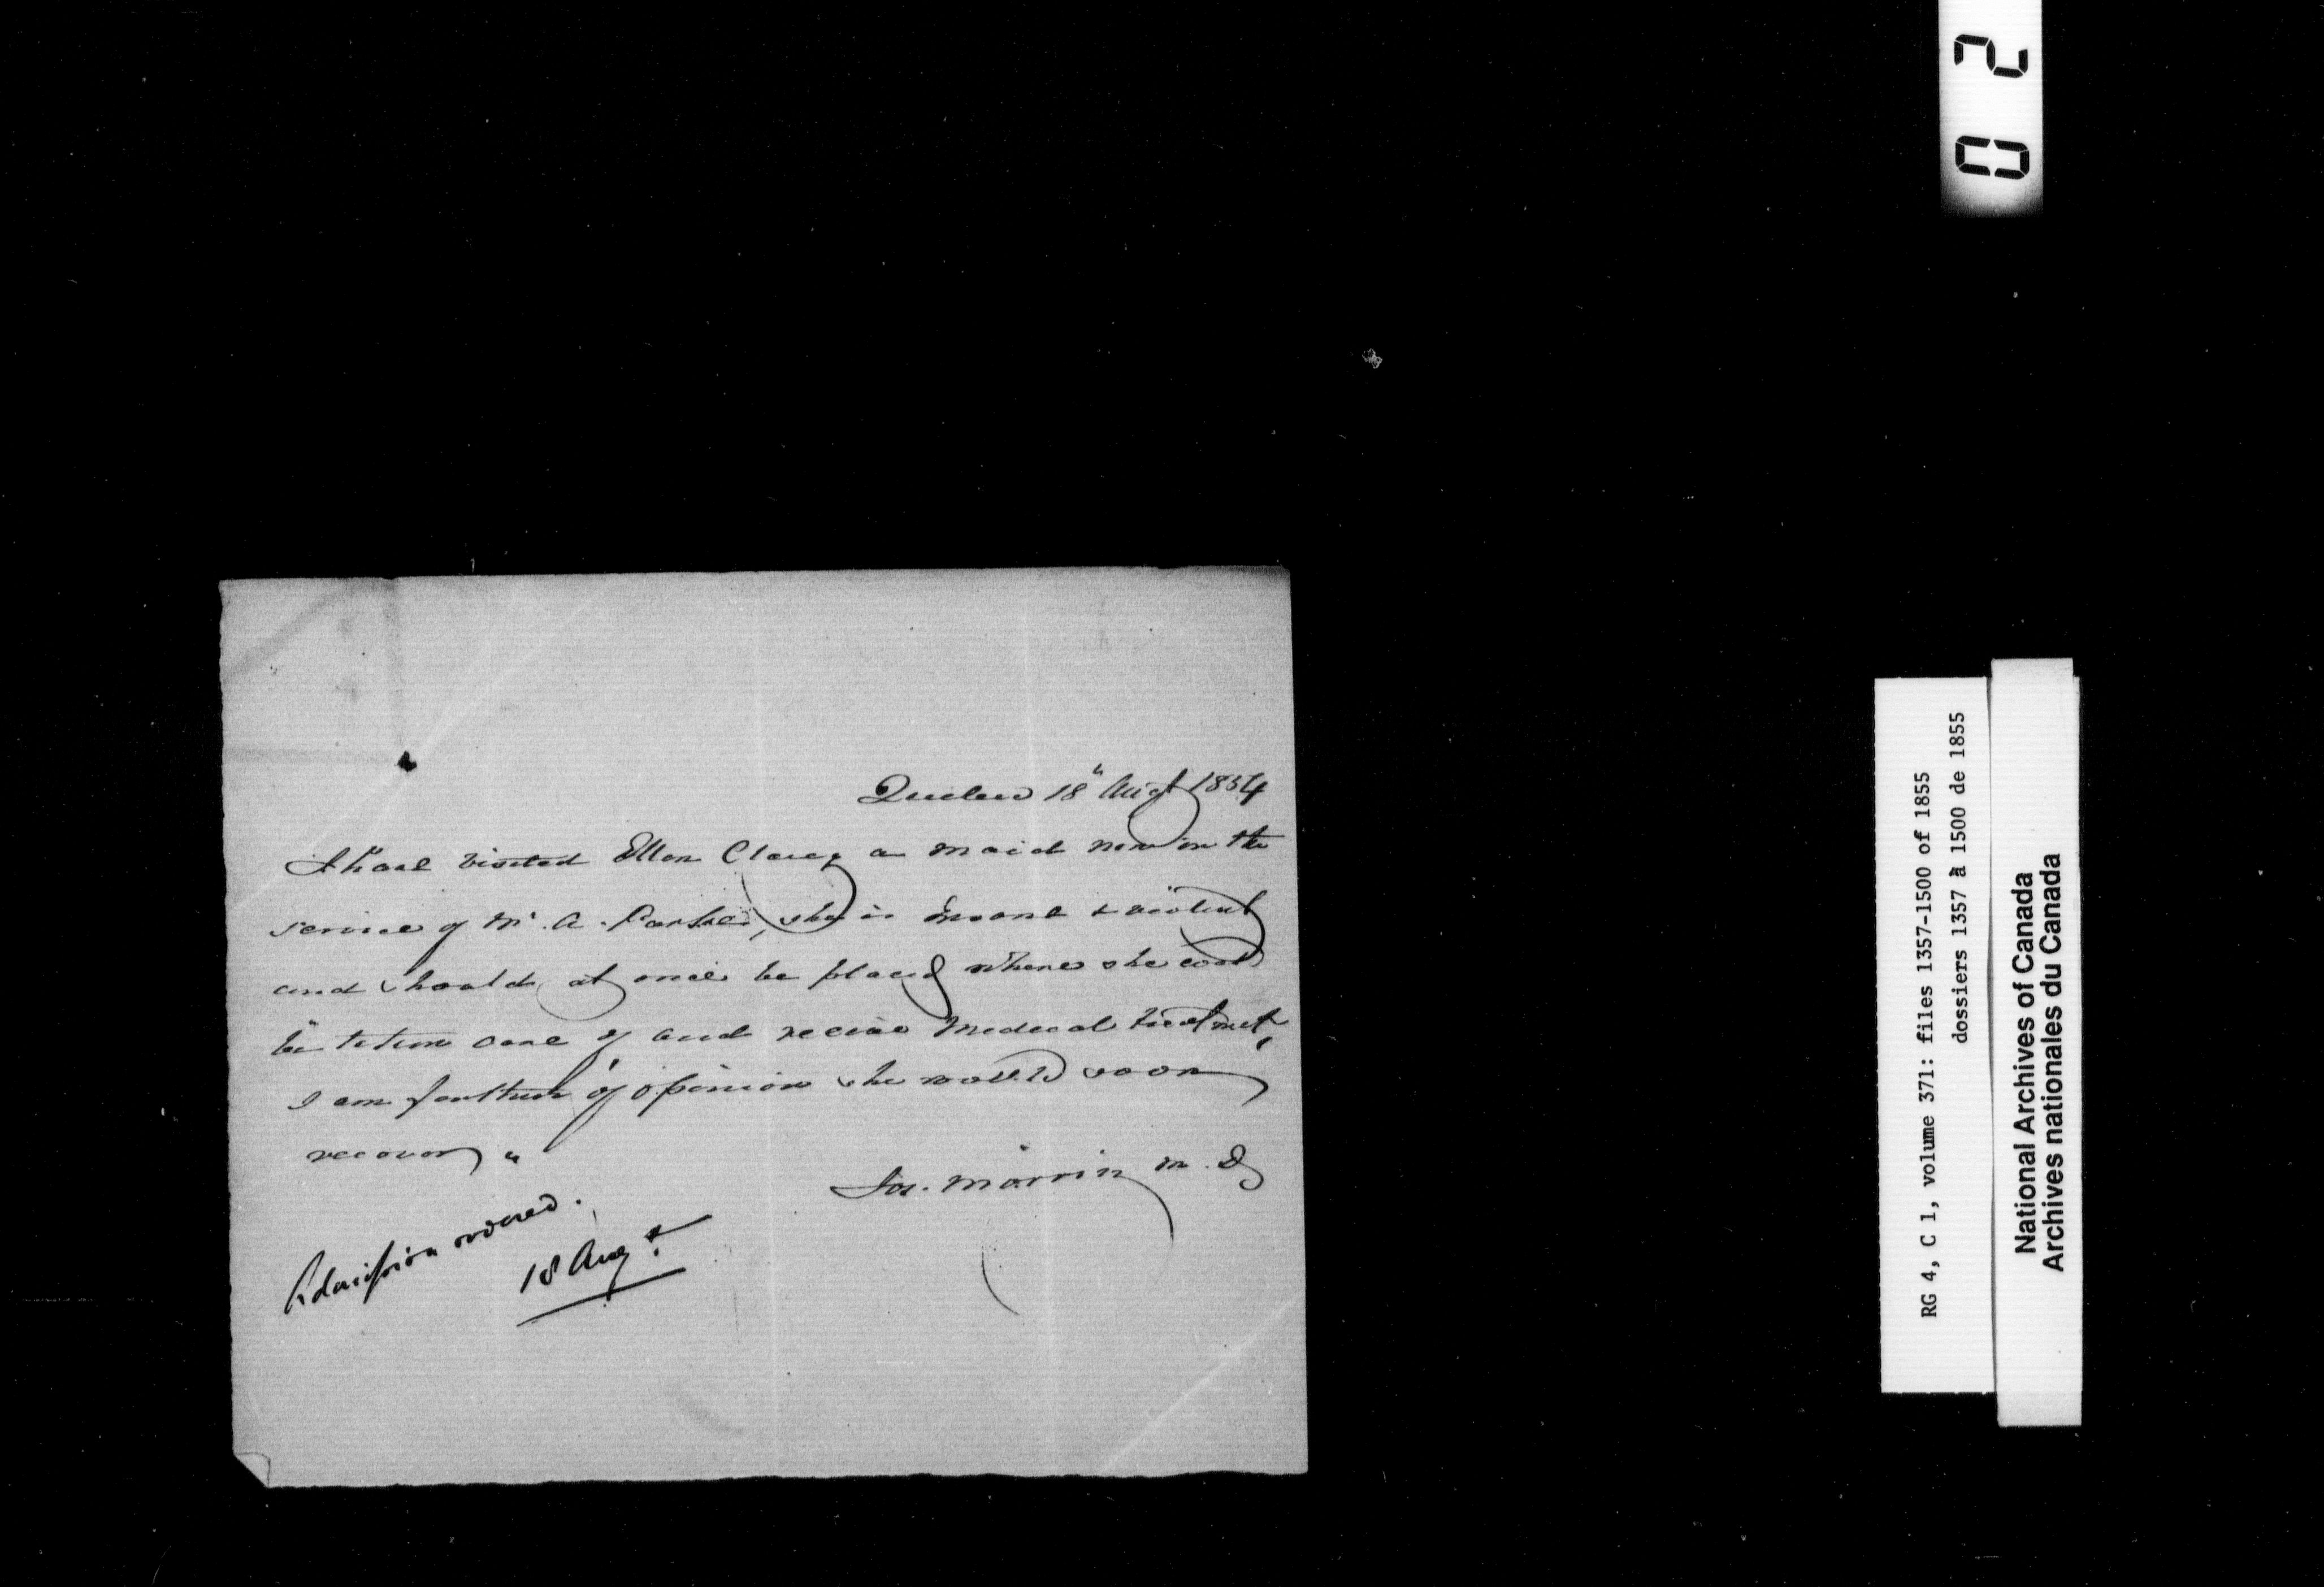 Quebec 18" Augt 1854
I have visited Ellen Clancy a maid now in the
service of Mr. A. Parke, she is insane & violent
and should at once be placed where she could
be taken care of and receive Medical treatment,
I am further of opinion she would soon
recover "
Jos. Morrin M.D
Admission ordered.
18 Augt.
0 2
RG 4, C 1, volume 371: files 1357-1500 of 1855
dossiers 1357 à 1500 de 1855
National Archives of Canada
Archives nationales du Canada